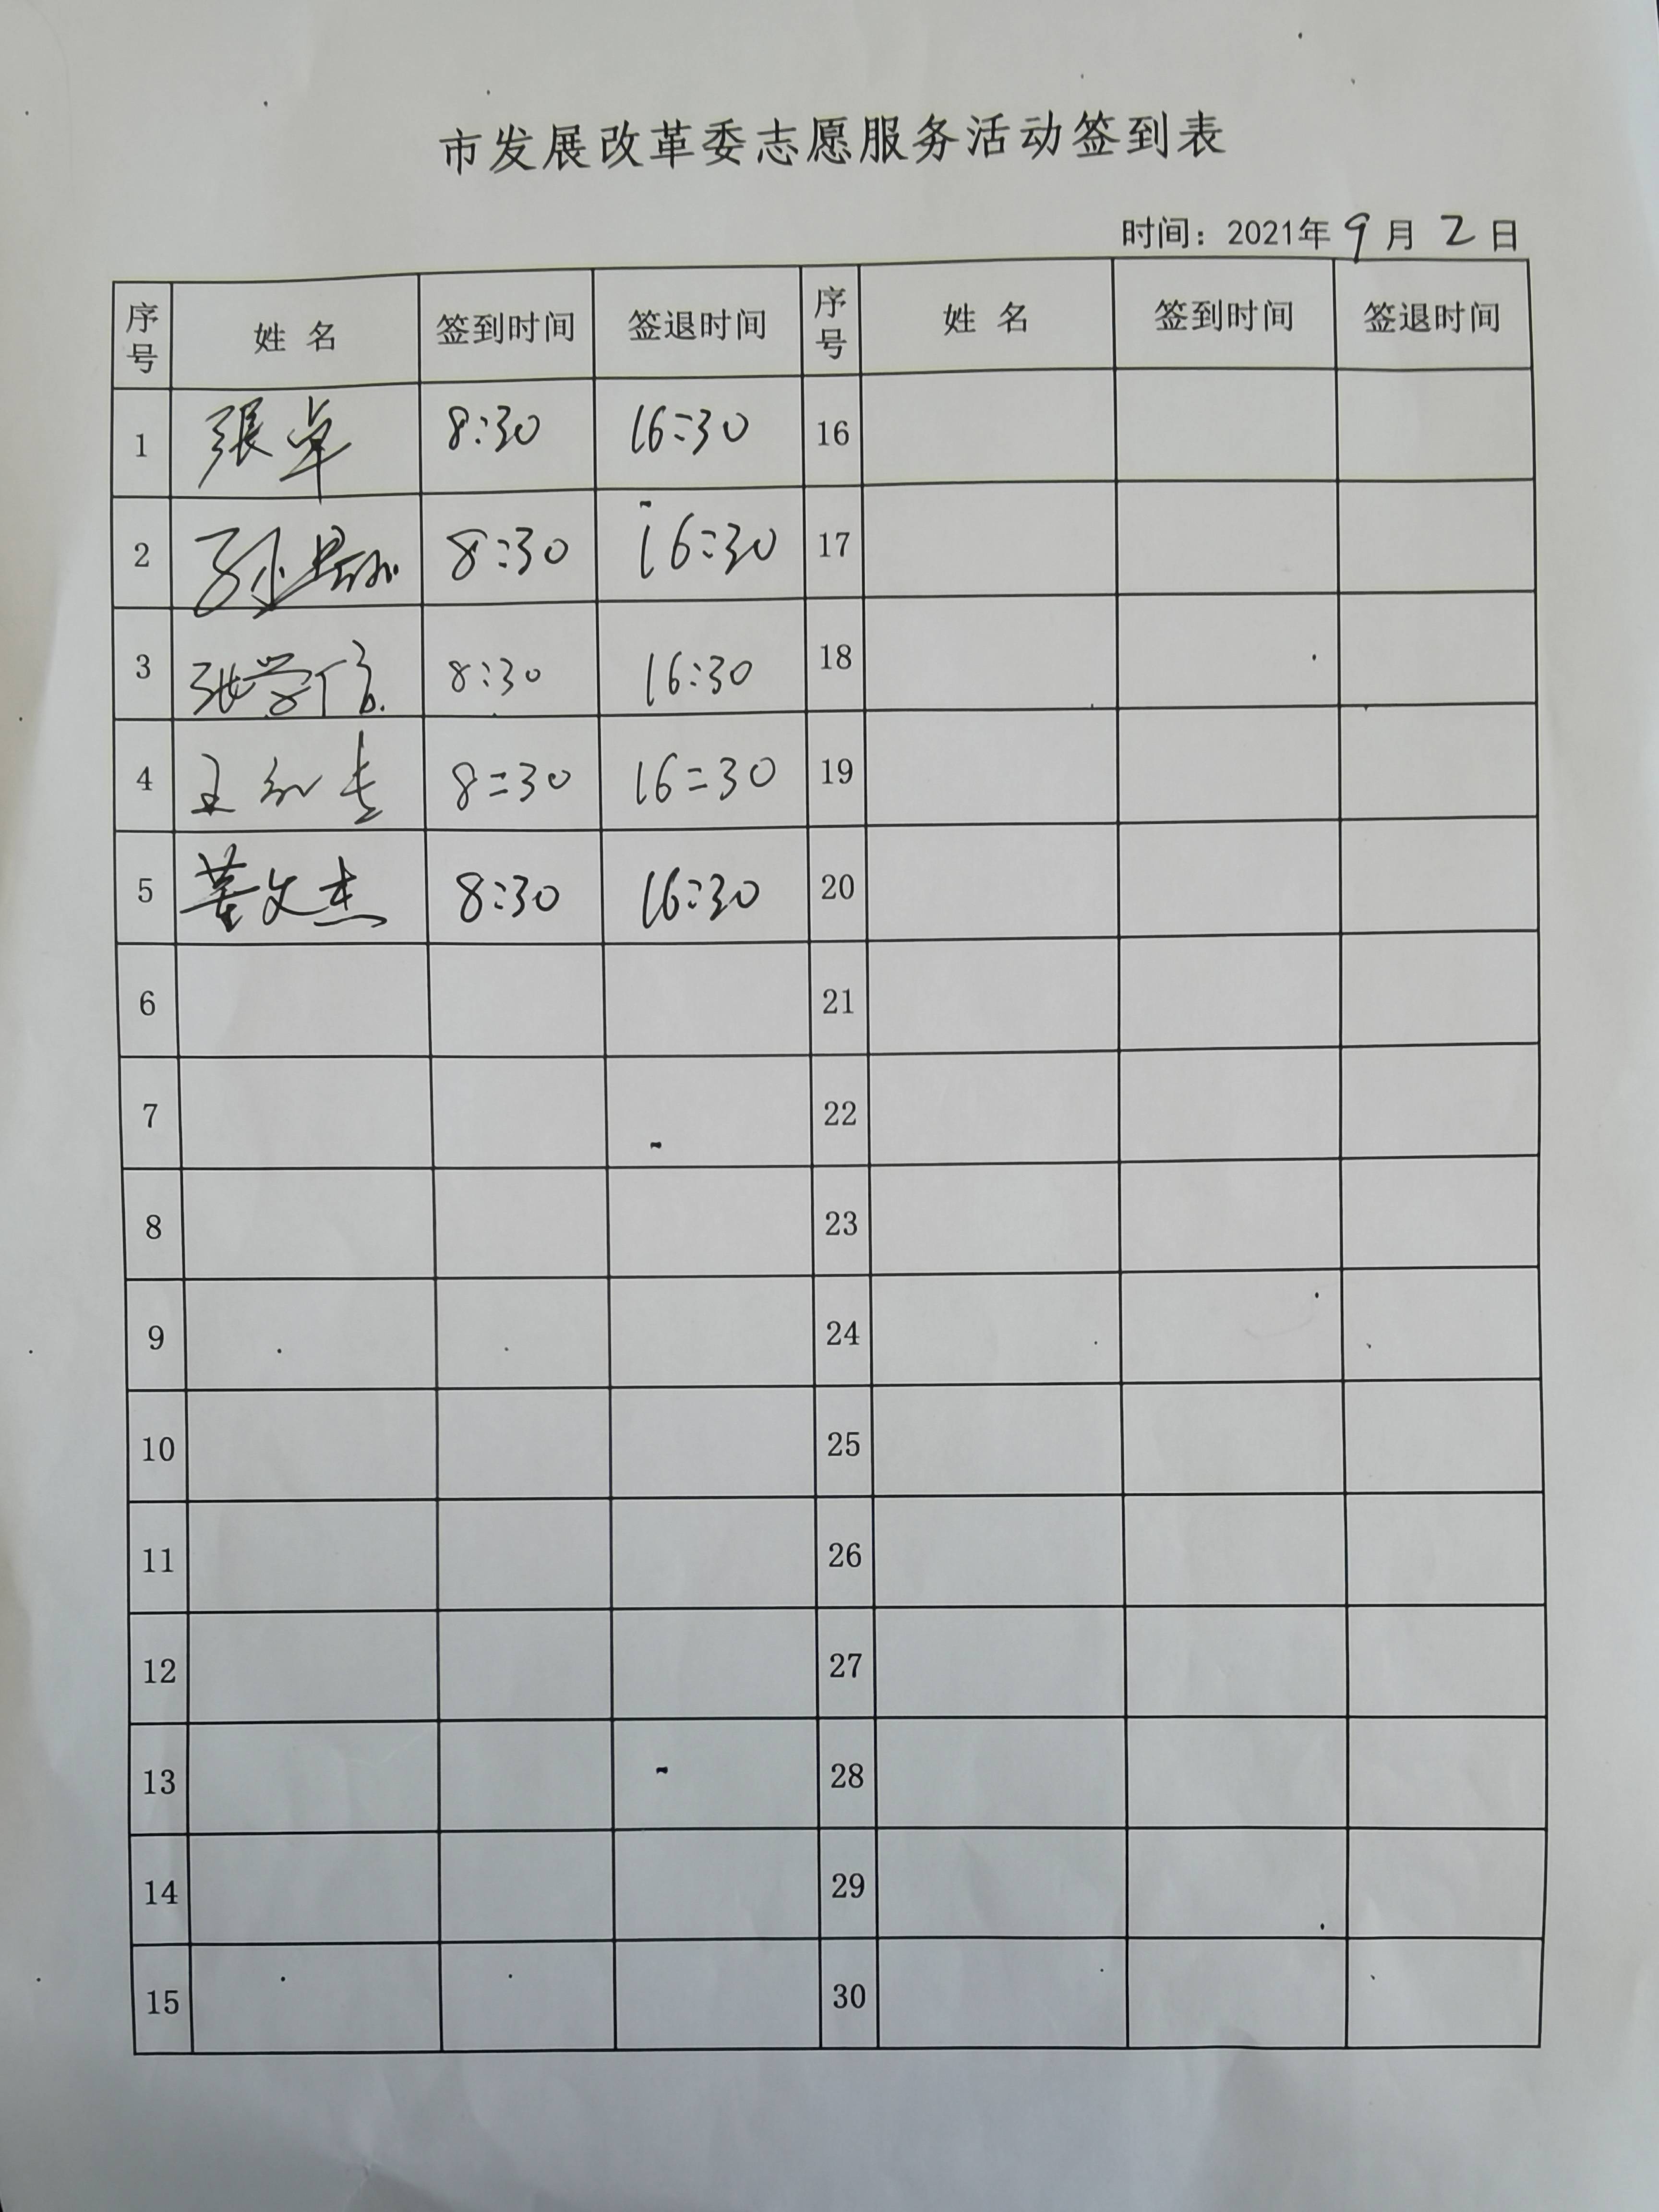 市发展改革委志愿服务活动签到表
时间：2021年 9 月 2 日
序号 姓 名 签到时间 签退时间 序号 姓 名 签到时间 签退时间
1 張卓 8:30 16:30 16
2 孙 8:30 16:30 17
3 张学信 8:30 16:30 18
4 王 8:30 16:30 19
5 董文杰 8:30 16:30 20
6 21
7 22
8 23
9 24
10 25
11 26
12 27
13 28
14 29
15 30